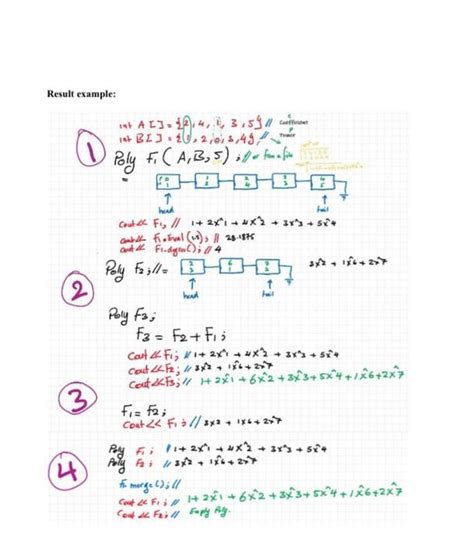 Result example:
int A[] = {2, 4, 1, 3, 5} // Coefficient
int B[] = {1, 2, 0, 3, 4}; // Power
1 Poly F1 (A, B, 5) ; // or from a file
head tail
Cout << F1, // 1 + 2x^1 + 4x^2 + 3x^3 + 5x^4
cout << F1.eval( ) ; // 28.1875
cout << F1.degree() ; // 4
2 Poly F2 ; // = 3x^2 + 1x^6 + 2x^7
head tail
Poly F3 ;
F3 = F2 + F1 ;
Cout << F1 ; // 1 + 2x^1 + 4x^2 + 3x^3 + 5x^4
Cout << F2 ; // 3x^2 + 1x^6 + 2x^7
Cout << F3 ; // 1 + 2x^1 + 6x^2 + 3x^3 + 5x^4 + 1x^6 + 2x^7
3 F1 = F2 ;
Cout << F1 ; // 3x^2 + 1x^6 + 2x^7
4 Poly F1 ; // 1 + 2x^1 + 4x^2 + 3x^3 + 5x^4
Poly F2 ; // 3x^2 + 1x^6 + 2x^7
merge() ; //
Cout << F1 ; // 1 + 2x^1 + 6x^2 + 3x^3 + 5x^4 + 1x^6 + 2x^7
Cout << F2 ; // Empty Poly.